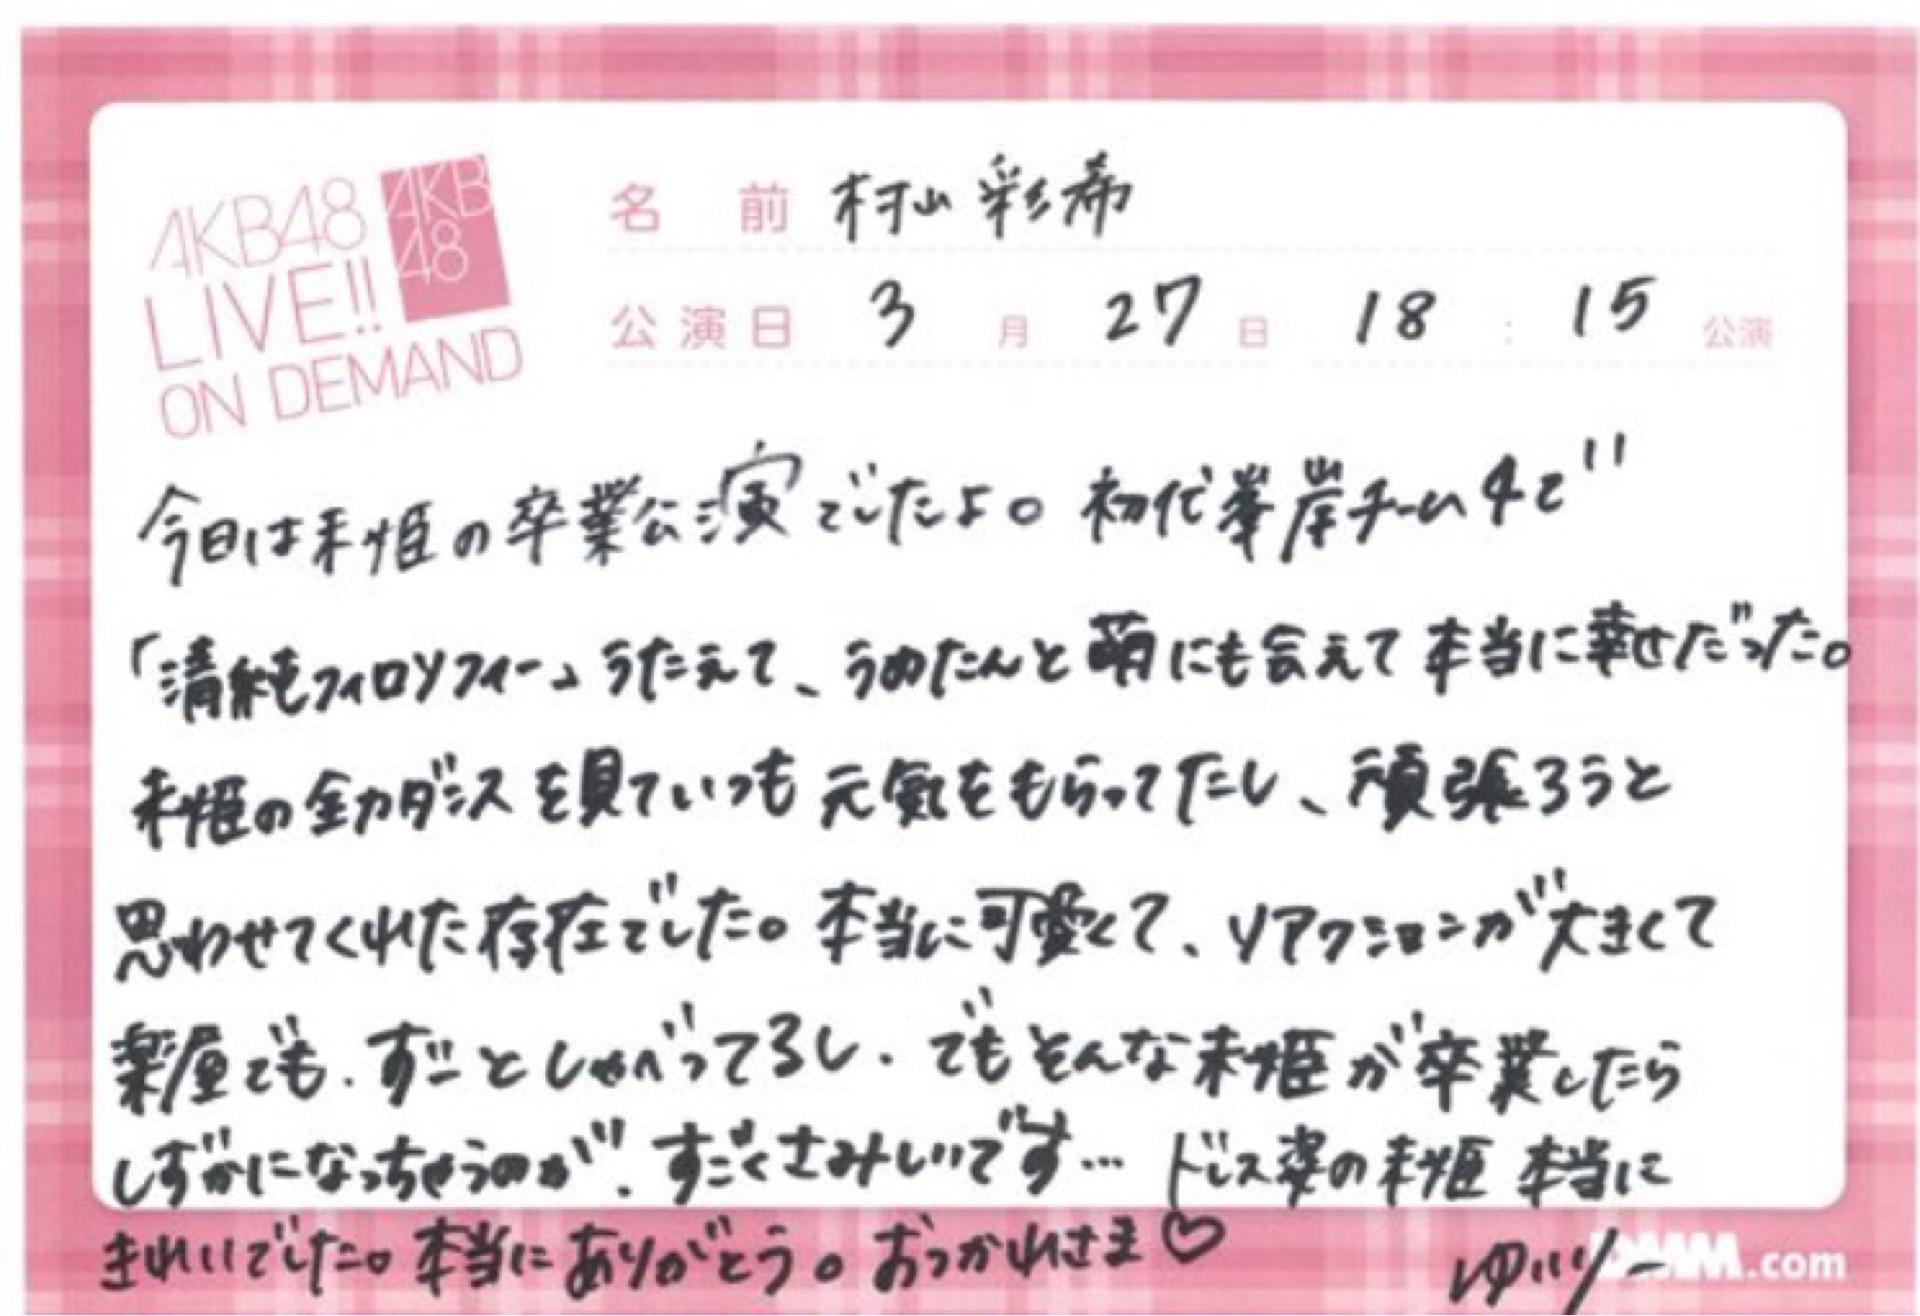 AKB48
LIVE!!
ON DEMAND
AKB
48
名前 村山彩希
公演日 3月27日 18:15公演
今日は未姫の卒業公演でしたよ。初代峯岸チーム4で
「清純フィロソフィー」うたえて、うめたんと萌にも会えて本当に幸せだった。
未姫の全力ダンスを見ていつも元気をもらってたし、頑張ろうと
思わせてくれた存在でした。本当に可愛くて、リアクションが大きくて
楽屋でも、ずーとしゃべってるし、でもそんな未姫が卒業したら
しずかになっちゃうのが、すごくさみしいです… ドレス姿の未姫 本当に
きれいでした。本当にありがとう。おつかれさま♡
ゆいりー
DMM.com